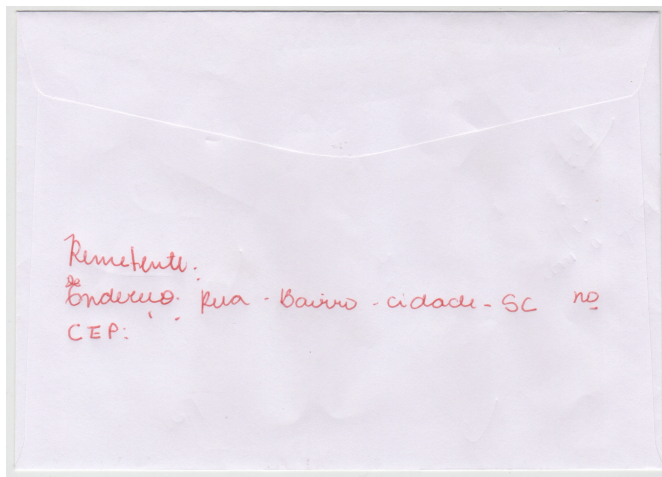 Remetente.
Endereço. Rua - Bairro - cidade - SC no
CEP: